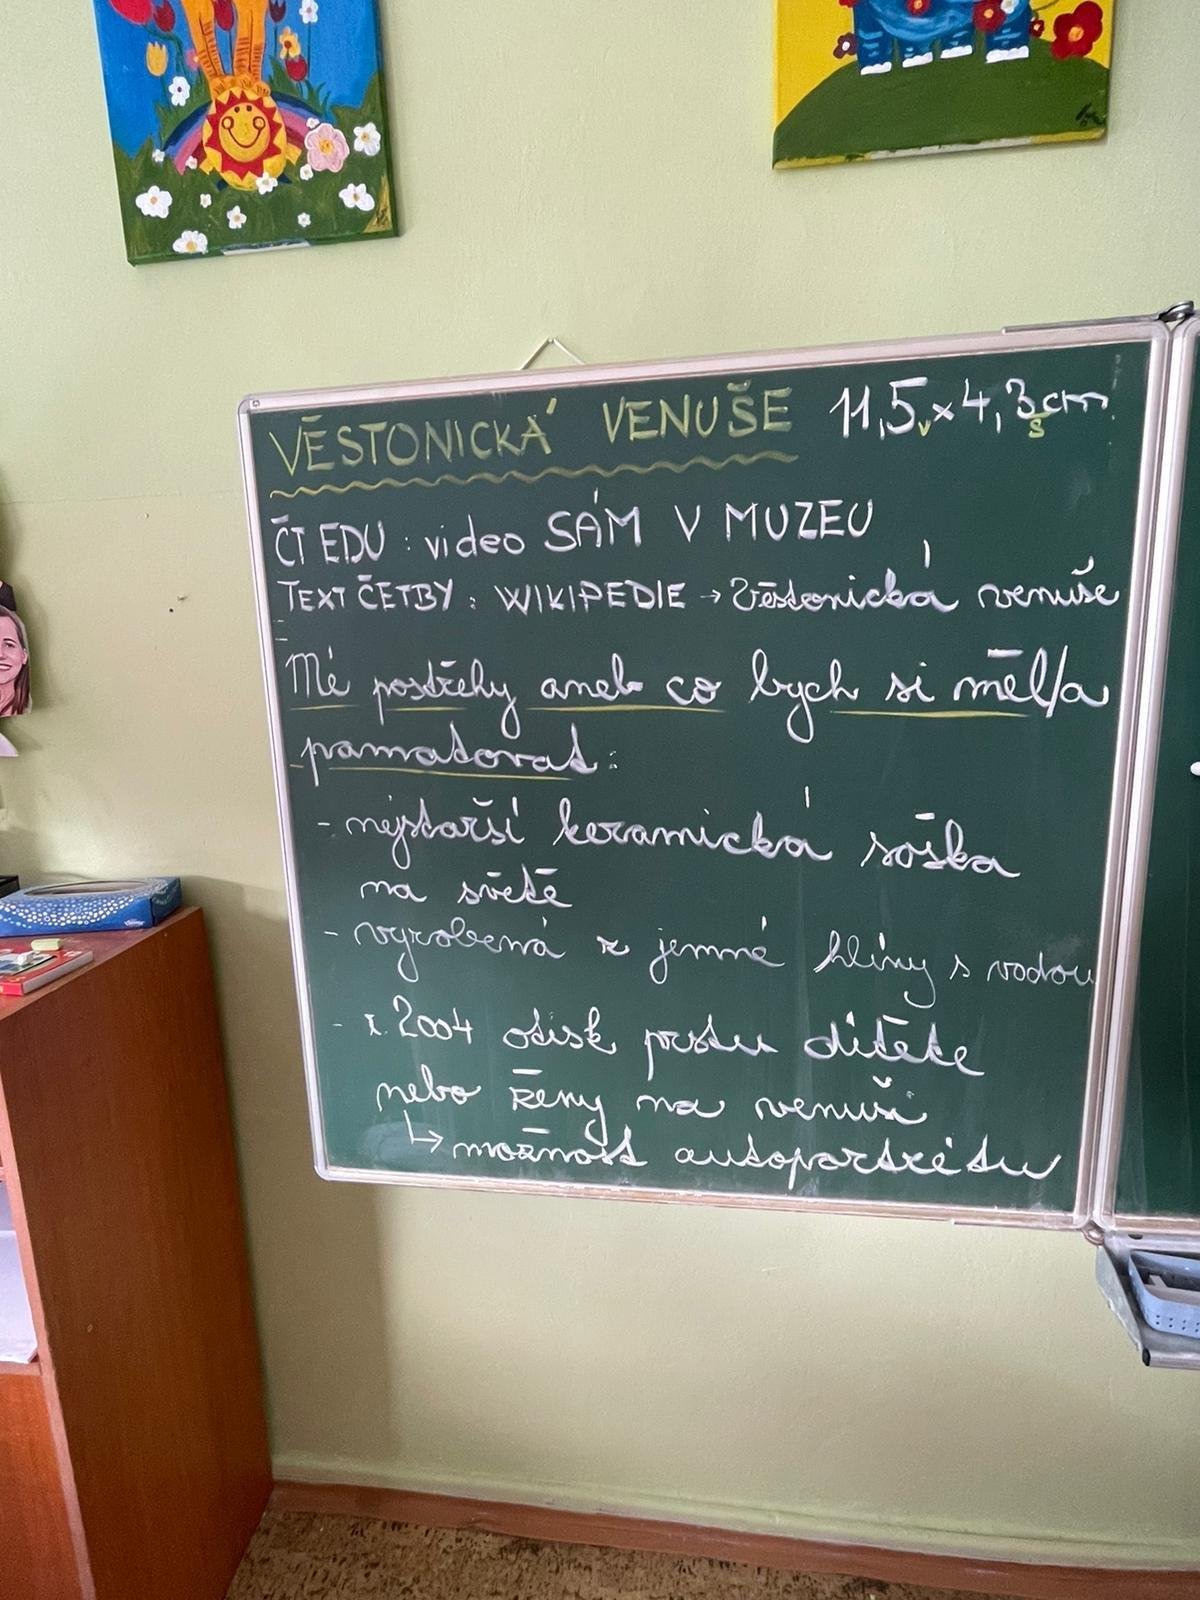 VĚSTONICKÁ VENUŠE 11,5 x 4,3 cm
v s
ČT EDU : video SÁM V MUZEU
TEXT ČETBY : WIKIPEDIE → Věstonická venuše
Mé postřehy aneb co bych si měl/a
pamatovat :
- nejstarší keramická soška
na světě
- vyrobená z jemné hlíny s vodou
- r. 2004 otisk prstu dítěte
nebo ženy na venuši
↳ možnost autoportrétu